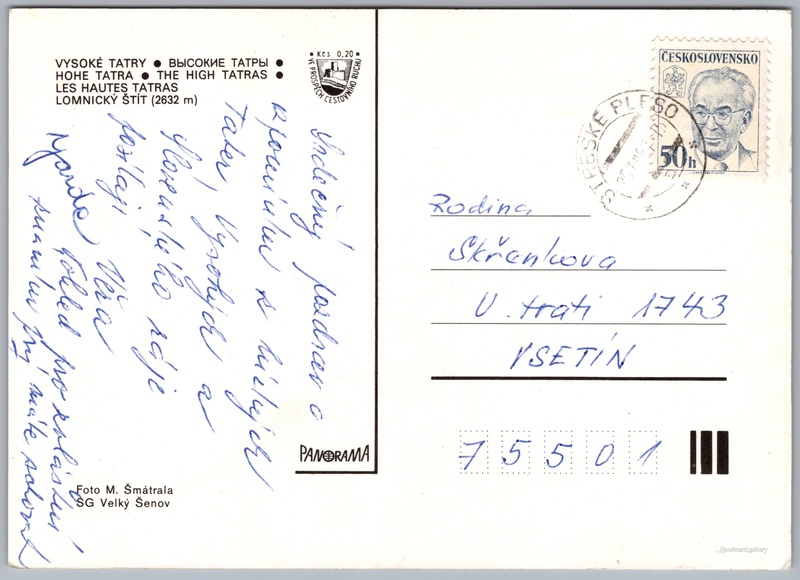 VYSOKÉ TATRY ● ВЫСОКИЕ ТАТРЫ ●
HOHE TATRA ● THE HIGH TATRAS ●
LES HAUTES TATRAS
LOMNICKÝ ŠTÍT (2632 m)
Kčs 0,20
VE PROSPĚCH CESTOVNÍHO RUCHU
Srdečný pozdrav a
vzpomínku z Nízkých
Tater, Vysokých a
Slovenského ráje
posílají
Věra
Pohled pro zvláštní
známku prý máte schovat
PANORAMA
Foto M. Šmátrala
SG Velký Šenov
ČESKOSLOVENSKO
50h
ŠTRBSKÉ PLESO
Rodina
Skřankova
U trati 1743
VSETÍN
75501